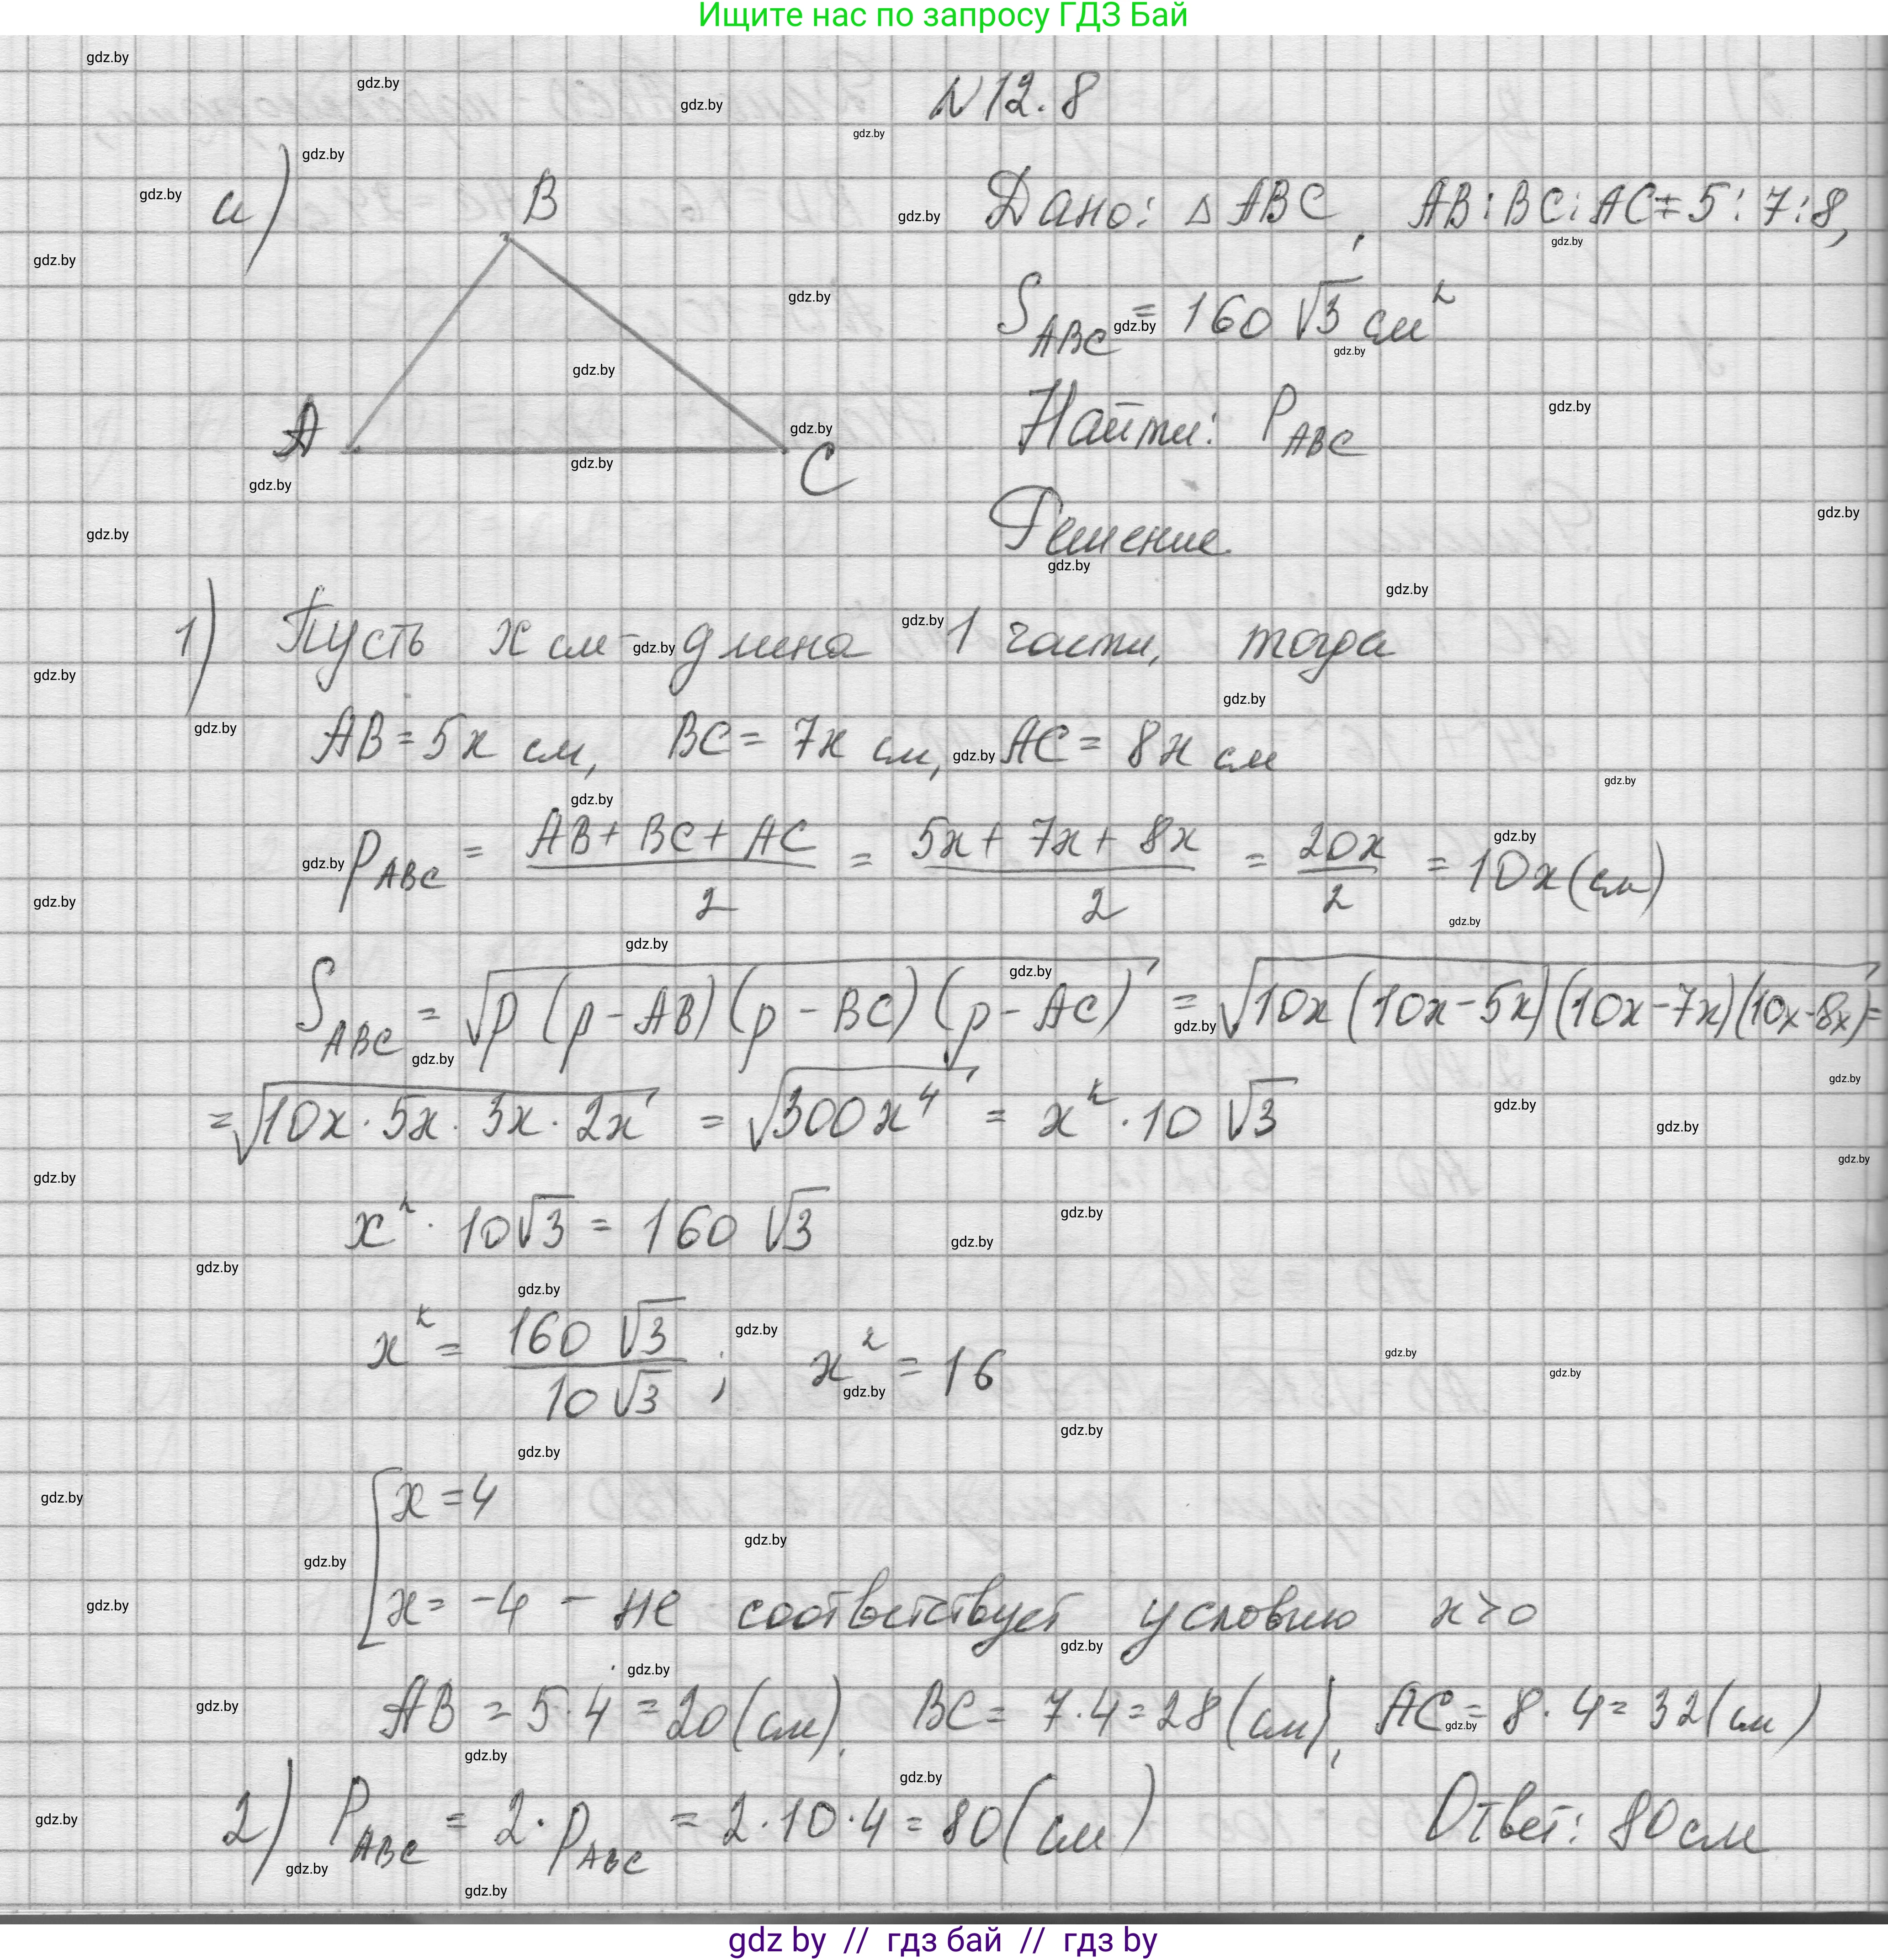 Ищите нас по запросу ГДЗ Бай
N 12.8
а)
B
A
C
Дано: △ ABC, AB : BC : AC = 5 : 7 : 8,
S_ABC = 160 √3 см²
Найти: P_ABC
Решение
1) Пусть x см - длина 1 части, тогда
AB = 5x см, BC = 7x см, AC = 8x см
p_ABC = (AB + BC + AC)/2 = (5x + 7x + 8x)/2 = 20x/2 = 10x (см)
S_ABC = √(p (p - AB) (p - BC) (p - AC)) = √(10x (10x - 5x) (10x - 7x) (10x - 8x)) =
= √(10x · 5x · 3x · 2x) = √(300x⁴) = x² · 10 √3
x² · 10√3 = 160 √3
x² = (160 √3)/(10 √3) ; x² = 16
[ x = 4
x = -4 - не соответствует условию x > 0
AB = 5 · 4 = 20 (см), BC = 7 · 4 = 28 (см), AC = 8 · 4 = 32 (см)
2) P_ABC = 2 · p_ABC = 2 · 10 · 4 = 80 (см) Ответ: 80 см
gdz by // гдз бай // гдз by